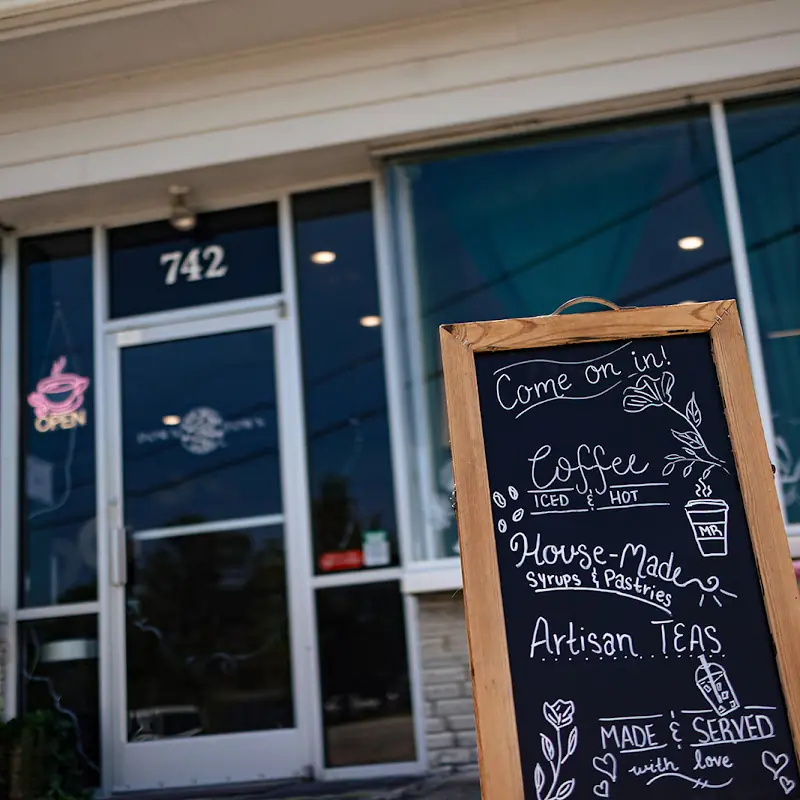 742
OPEN
Come on in!
Coffee
ICED & HOT
MR
House-Made
Syrups & Pastries
Artisan TEAS
MADE & SERVED
with love